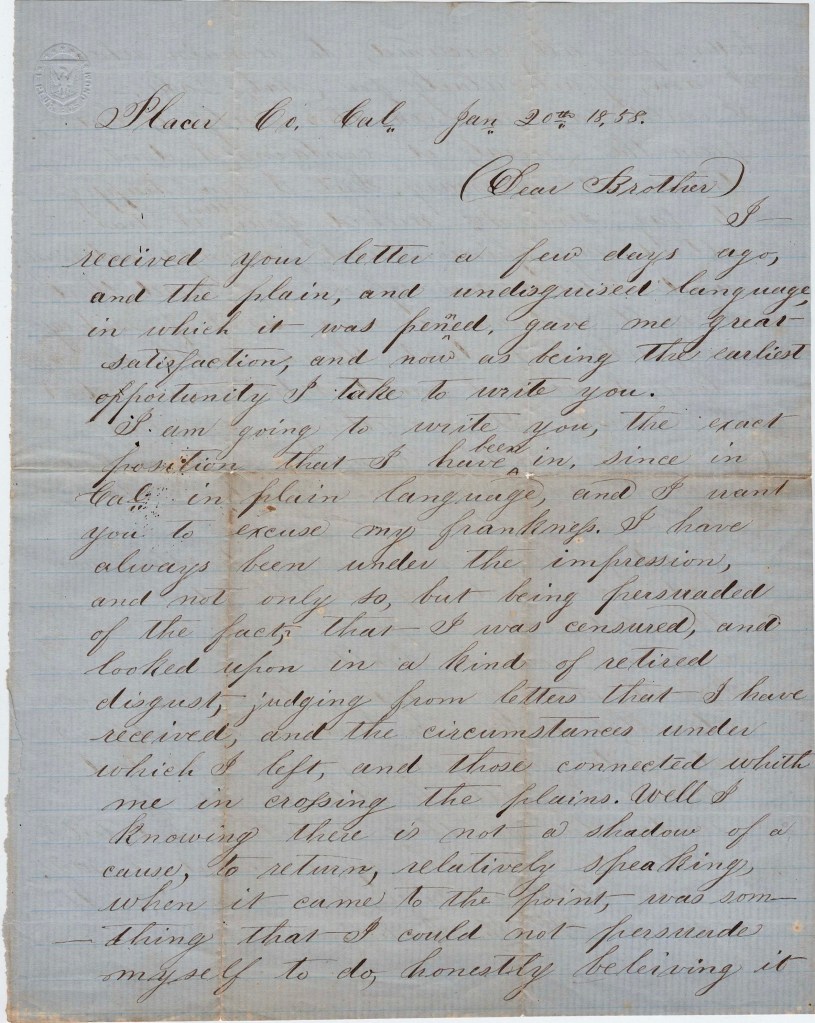 Placer Co. Cal,, Jan,, 20th 18,58.
(Dear Brother)
I—
received your letter a few days ago,
and the plain, and undisguised language,
in which it was penned, gave me great
satisfaction, and now as being the earliest
opportunity I take to write you.
I am going to write you, the exact
position that I have been in, since in
Cal,, in plain language, and I want
you to excuse my frankness. I have
always been under the impression,
and not only so, but being persuaded
of the fact, that I was censured, and
looked upon in a kind of retired
disgust, judging from letters that I have
received, and the circumstances under
which I left, and those connected whith
me in crossing the plains. Well I
knowing there is not a shadow of a
cause, to return, relatively speaking,
when it came to the point, was som—
—thing that I could not persuade
myself to do, honestly beleiving it